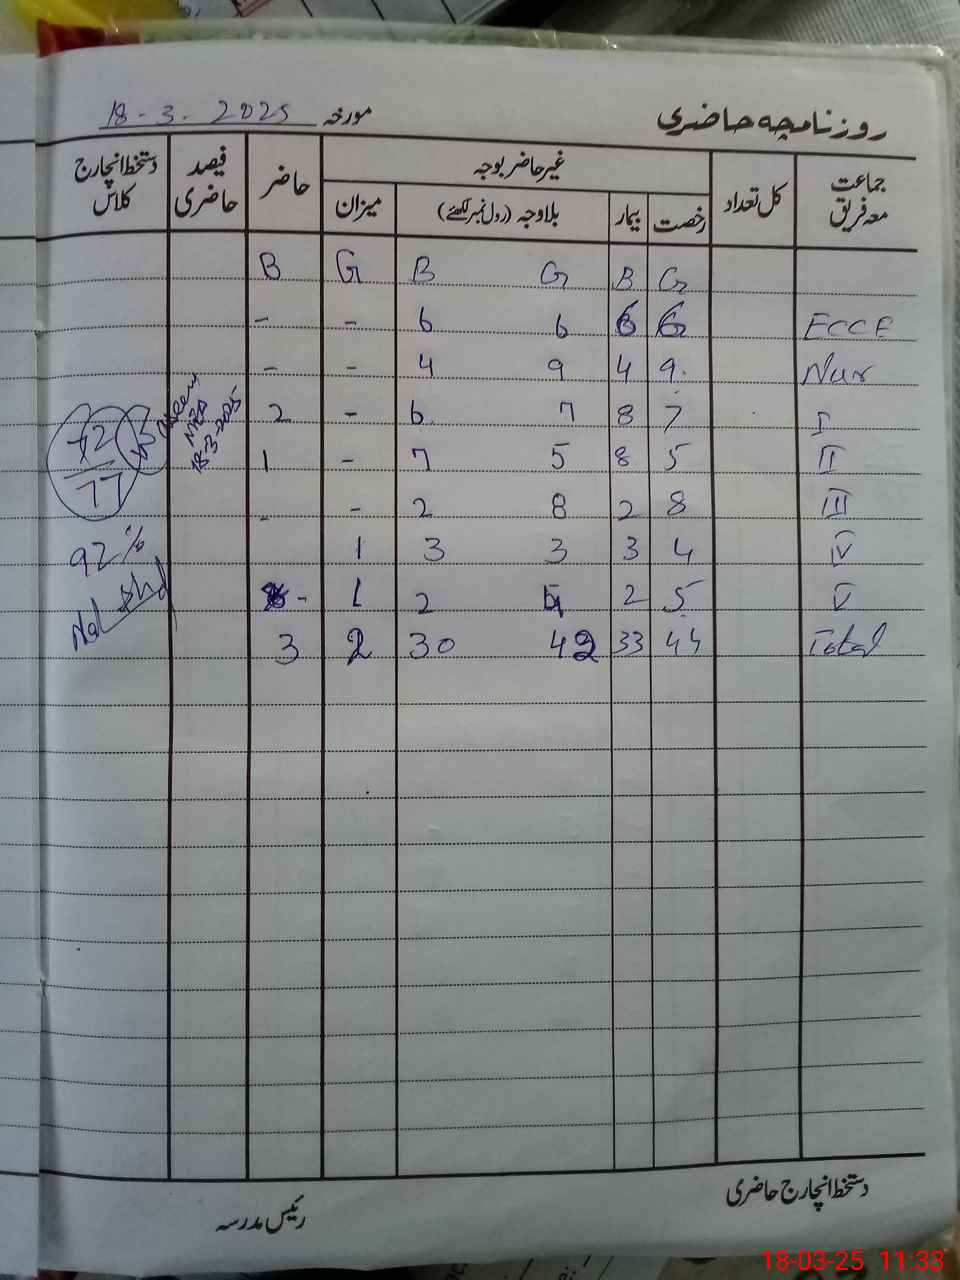 روزنامچہ حاضری
مورخہ 18-3-2025
جماعت معہ فریق کل تعداد غیر حاضر بوجہ حاضر فیصد حاضری دستخط انچارج کلاس
رخصت بیمار بلاوجہ (رول نمبر لکھئے) میزان
B G B G B G
- - 6 6 6 6 ECCE
- - 4 9 4 9 Nur
2 - 6 7 8 7 I
1 - 7 5 8 5 II
- - 2 8 2 8 III
1 3 3 3 4 IV
- 1 2 4 2 5 V
3 2 30 42 33 44 Total
72
77
5
MEA
18-3-2025
92%
دستخط انچارج حاضری
رئیس مدرسہ
18-03-25 11:33